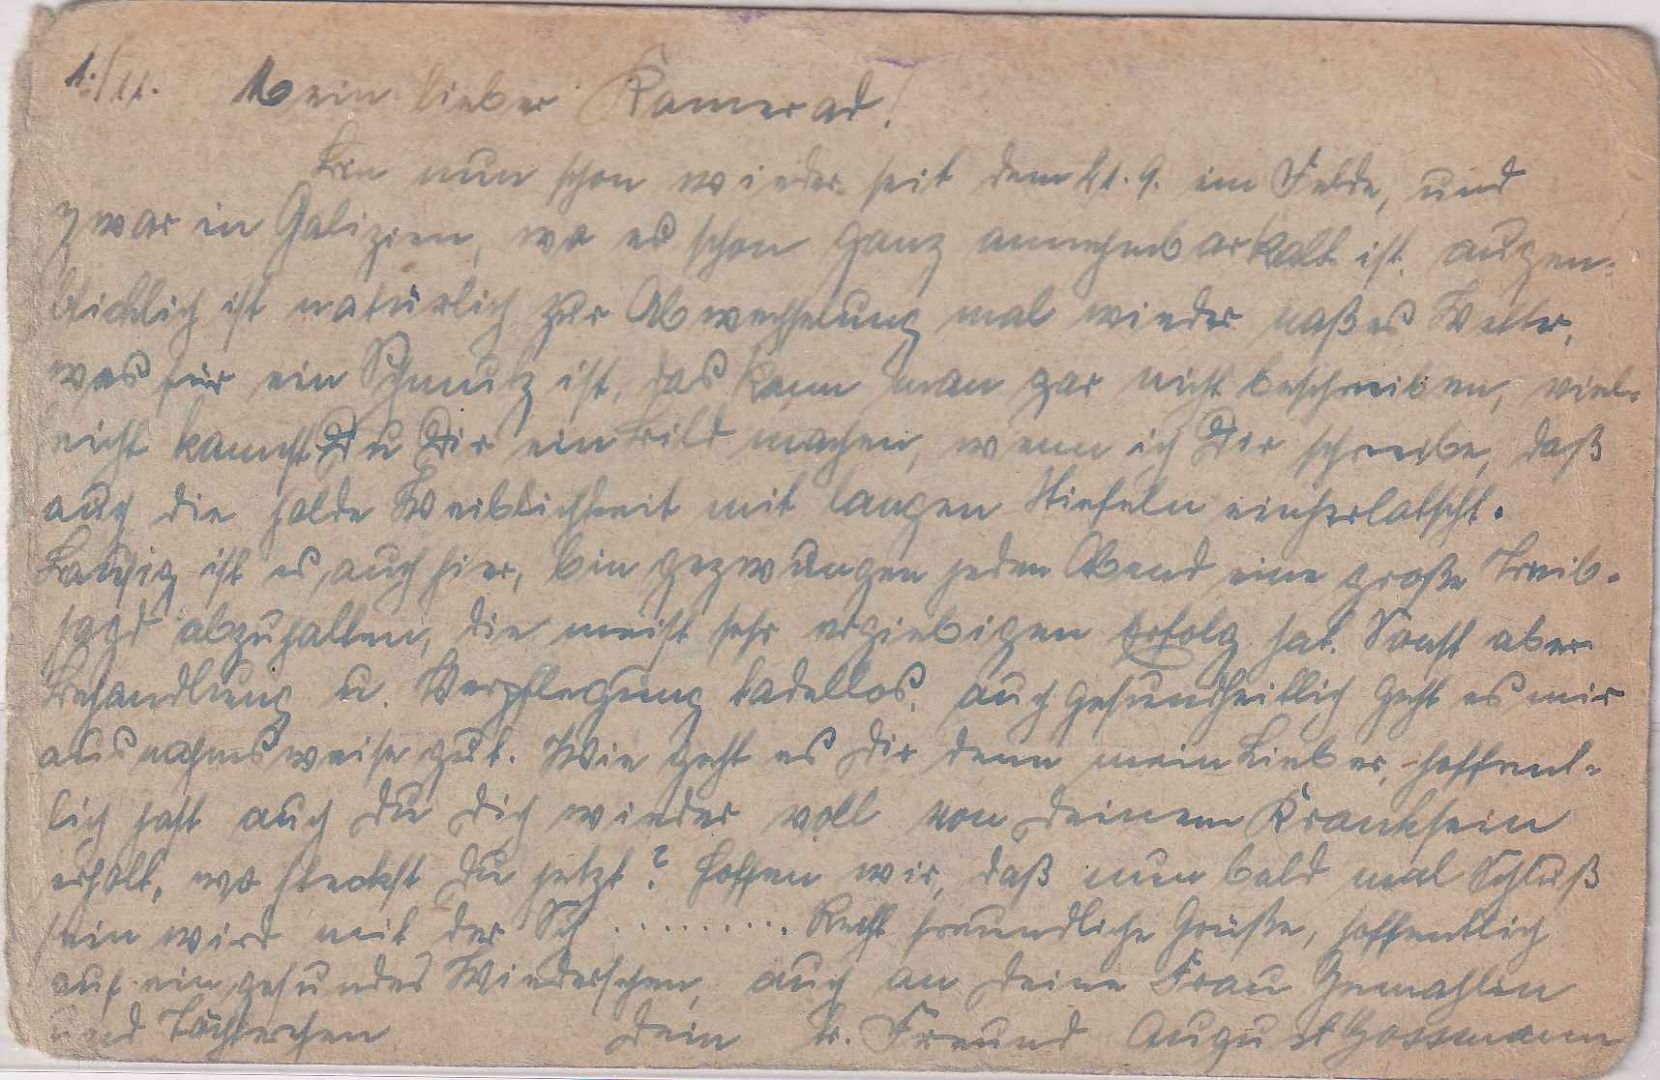 1./11. Mein lieber Kamerad!
Bin nun schon wieder seit dem 21.9. im Felde, und
zwar in Galizien, wo es schon ganz annehmbar kalt ist. augen-
blicklich ist natürlich zur Abwechselung mal wieder naßes Wetter,
was für ein Schmutz ist, das kann man gar nicht beschreiben, viel-
leicht kannst Du Dir ein Bild machen, wenn ich Dir schreibe, daß
auch die holde Weiblichkeit mit langen Stiefeln einherlatscht.
Lausig ist es auch hier, bin gezwungen jeden Abend eine große Treib-
jagd abzuhalten, die meist sehr ergiebigen Erfolg hat. Sonst aber
Behandlung u. Verpflegung tadellos, auch gesundheitlich geht es mir
ausnahmsweise gut. Wie geht es Dir denn mein Lieber, hoffent-
lich hast auch Du Dich wieder voll von Deinem Kranksein
erholt, wo steckst Du jetzt? Hoffen wir, daß nun bald mal Schluß
sein wird mit der Sch ......... Recht freundliche Grüße, hoffentlich
auf ein gesundes Wiedersehen, auch an Deine Frau Gemahlin
und Töchterchen Dein tr. Freund August Gossmann